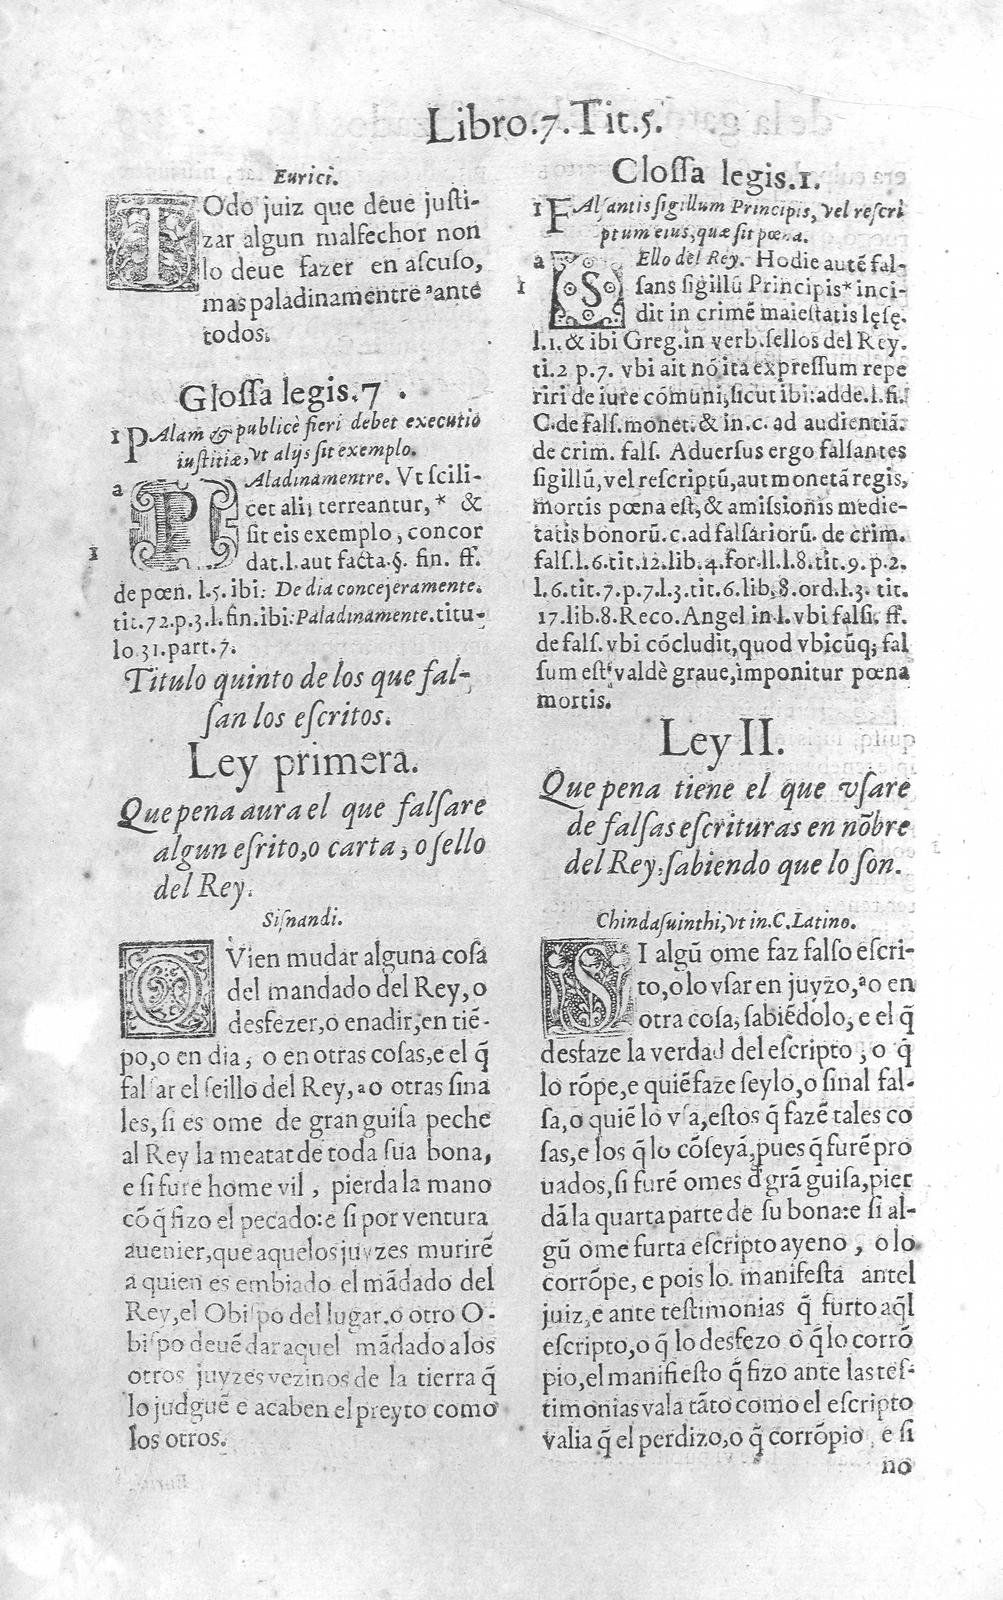 Libro.7.Tit.5.
Eurici.
TOdo juiz que deue justi-
zar algun malfechor non
lo deue fazer en ascuso,
mas paladinamentre ᵃante
todos.
Glossa legis.7.
1 PAlam & publicè fieri debet executio
iustitiæ, vt alijs sit exemplo.
a PAladinamentre. Vt scili-
cet alij terreantur, * &
sit eis exemplo, concor
1 dat.l.aut facta.§. fin. ff.
de pœn. l.5. ibi: De dia concejeramente.
tit.72.p.3.l.fin.ibi: Paladinamente. titu-
lo 31.part.7.
Titulo quinto de los que fal-
san los escritos.
Ley primera.
Que pena aura el que falsare
algun esrito, o carta, o sello
del Rey.
Sisnandi.
QVien mudar alguna cosa
del mandado del Rey, o
desfezer, o enadir, en tiẽ-
po, o en dia, o en otras cosas, e el q̃
falsar el seillo del Rey, ᵃo otras sina
les, si es ome de gran guisa peche
al Rey la meatat de toda sua bona,
e si fure home vil, pierda la mano
cõ q̃ fizo el pecado: e si por ventura
auenier, que aquelos juyzes murirẽ
a quien es embiado el mãdado del
Rey, el Obispo del lugar, o otro O-
bispo deuẽ dar aquel mãdado a los
otros juyzes vezinos de la tierra q̃
lo judguẽ e acaben el preyto como
los otros.
Glossa legis.1.
1 FAlsantis sigillum Principis, vel rescri
ptum eius, quæ sit pœna.
a SEllo del Rey. Hodie autẽ fal-
1 sans sigillũ Principis* inci-
dit in crimẽ maiestatis lęsę.
l.1. & ibi Greg. in verb. sellos del Rey.
ti.2 p.7. vbi ait nõ ita expressum repe
riri de iure cõmuni, sicut ibi: adde.l.fi.
C.de fals.monet. & in.c. ad audientiã.
de crim. fals. Aduersus ergo falsantes
sigillũ, vel rescriptũ, aut monetã regis,
mortis pœna est, & amissionis medie-
tatis bonorũ.c.ad falsariorũ. de crim.
fals.l.6.tit.12.lib.4.for.ll.l.8.tit.9.p.2.
l.6.tit.7.p.7.l.3.tit.6.lib.8.ord.l.3. tit.
17.lib.8.Reco. Angel in.l.vbi falsi. ff.
de fals. vbi cõcludit, quod vbicũq; fal
sum est valdè graue, imponitur pœna
mortis.
Ley II.
Que pena tiene el que vsare
de falsas escrituras en nõbre
del Rey, sabiendo que lo son.
Chindasuinthi, vt in.C.Latino.
SI algũ ome faz falso escri-
to, o lo vsar en juyzo, ᵃo en
otra cosa, sabiẽdolo, e el q̃
desfaze la verdad del escripto, o q̃
lo rõpe, e quiẽ faze seylo, o sinal fal-
sa, o quiẽ lo vsa, estos q̃ fazẽ tales co
sas, e los q̃ lo cõseyã, pues q̃ furẽ pro
uados, si furẽ omes d̃ grã guisa, pier
dã la quarta parte de su bona: e si al-
gũ ome furta escripto ayeno, o lo
corrõpe, e pois lo manifesta antel
juiz, e ante testimonias q̃ furto aq̃l
escripto, o q̃ lo desfezo o q̃ lo corrõ
pio, el manifiesto q̃ fizo ante las tes-
timonias vala tãto como el escripto
valia q̃ el perdizo, o q̃ corrõpio, e si
no